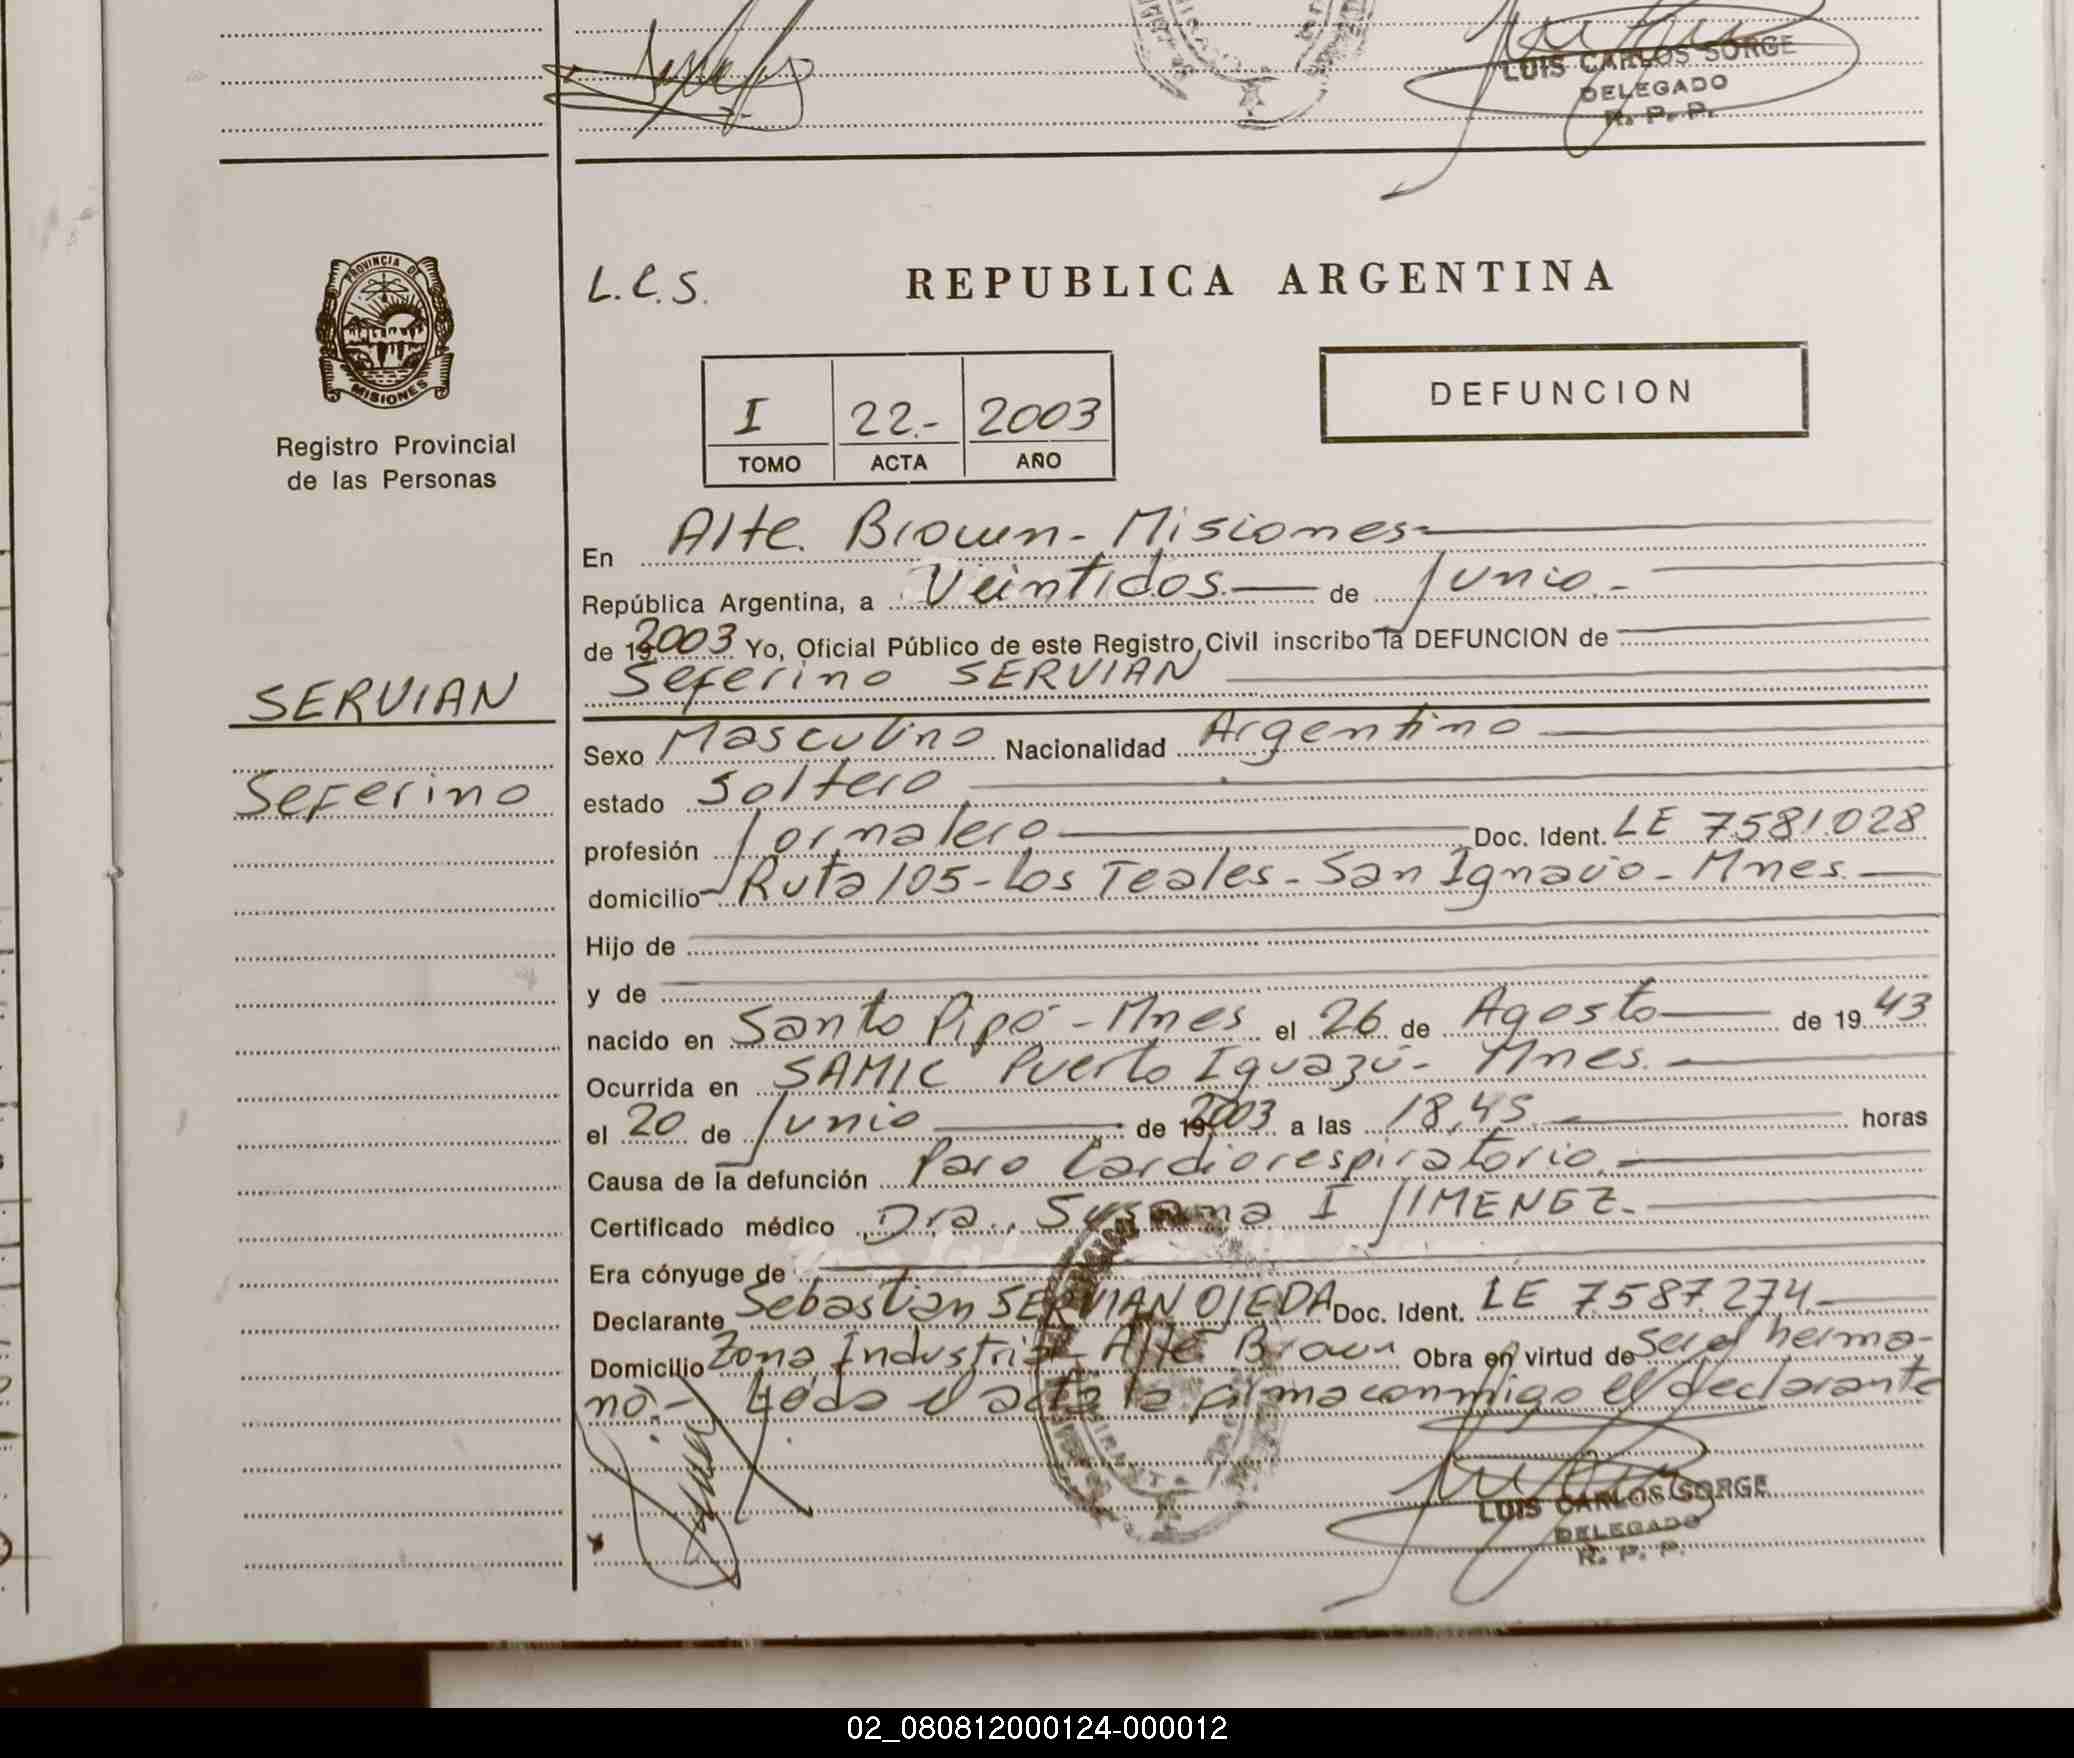 LUIS CARLOS SORGE
DELEGADO
R. P. P.
PROVINCIA DE
MISIONES
Registro Provincial
de las Personas
L.C.S.
REPUBLICA ARGENTINA
I 22.- 2003
TOMO ACTA AÑO
DEFUNCION
En Alte. Brown - Misiones
República Argentina, a Veintidos de Junio.-
de 19 2003 Yo, Oficial Público de este Registro Civil inscribo la DEFUNCION de
SERVIAN
Seferino SERVIAN
Sexo Masculino Nacionalidad Argentino
Seferino
estado Soltero
profesión Jornalero Doc. Ident. LE 7.581.028
domicilio Ruta 105 - Los Teales - San Ignacio - Mnes.
Hijo de
y de
nacido en Santo Pipó - Mnes el 26 de Agosto de 19 43
Ocurrida en SAMIC Puerto Iguazú - Mnes.
el 20 de Junio de 19 2003 a las 18,45 horas
Causa de la defunción Paro Cardiorespiratorio.
Certificado médico Dra. Susana I JIMENEZ.
Era cónyuge de
Declarante Sebastian SERVIAN OJEDA Doc. Ident. LE 7.587.274
Domicilio Zona Industrial Alte Brown Obra en virtud de ser el herma-
no.- Leida el acta la firma conmigo el declarante
LUIS CARLOS SORGE
DELEGADO
R. P. P.
02_080812000124-000012